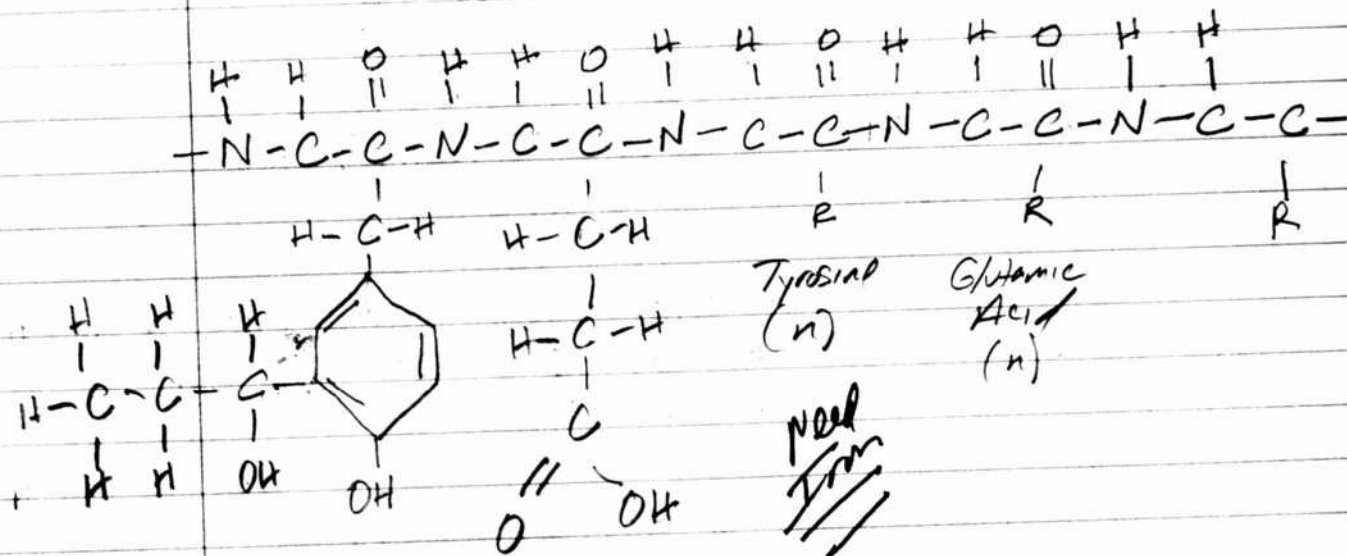 H H O H H O H H O H H O H H
-N-C-C-N-C-C-N-C-C-N-C-C-N-C-C-
H-C-H H-C-H R R R
Tyrosine Glutamic
(n) Acid
(n)
H H H H-C-H
H-C-C-C
H H OH OH C
O OH
Need
Iron